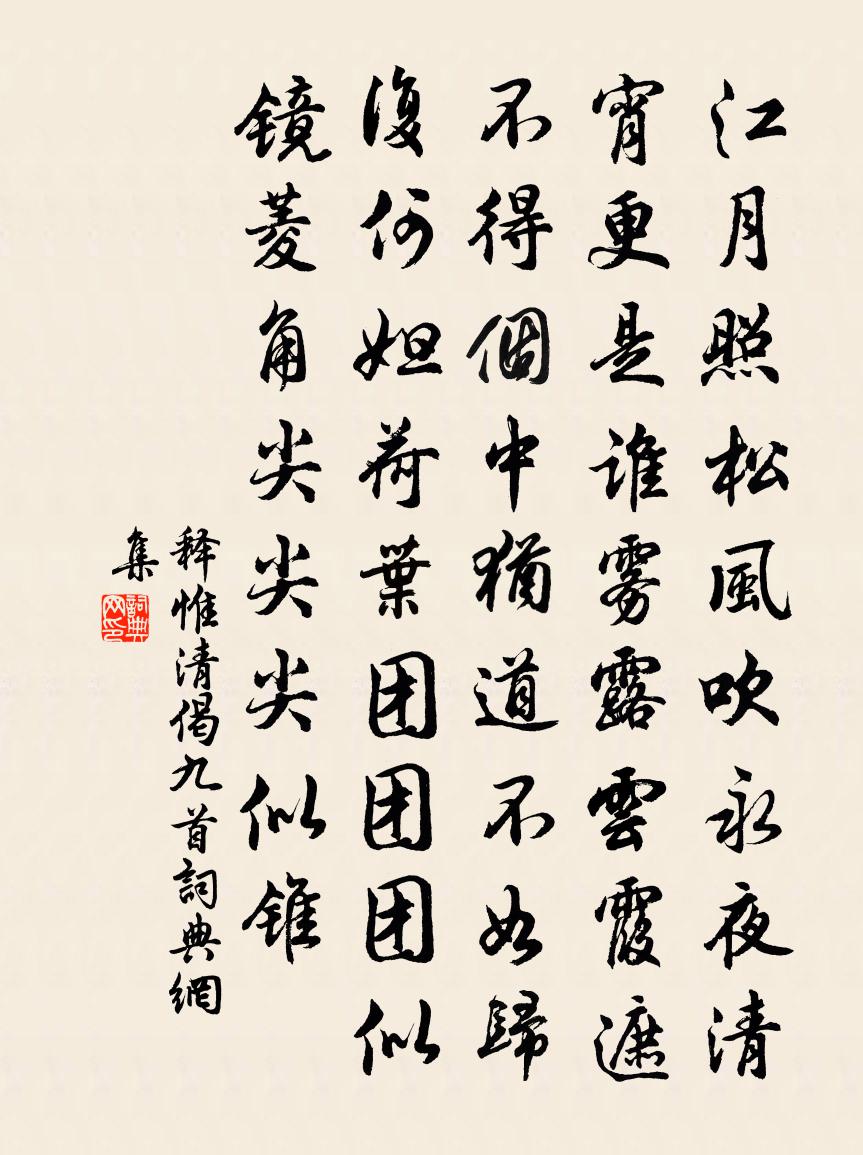 江月照松風吹永夜清
宵更是誰雾露雲霞遮
不得個中猶道不如歸
復何妲荷葉团团团似
镜菱角尖尖尖似锥
释惟清偈九首詞典網
集
詞典
网印